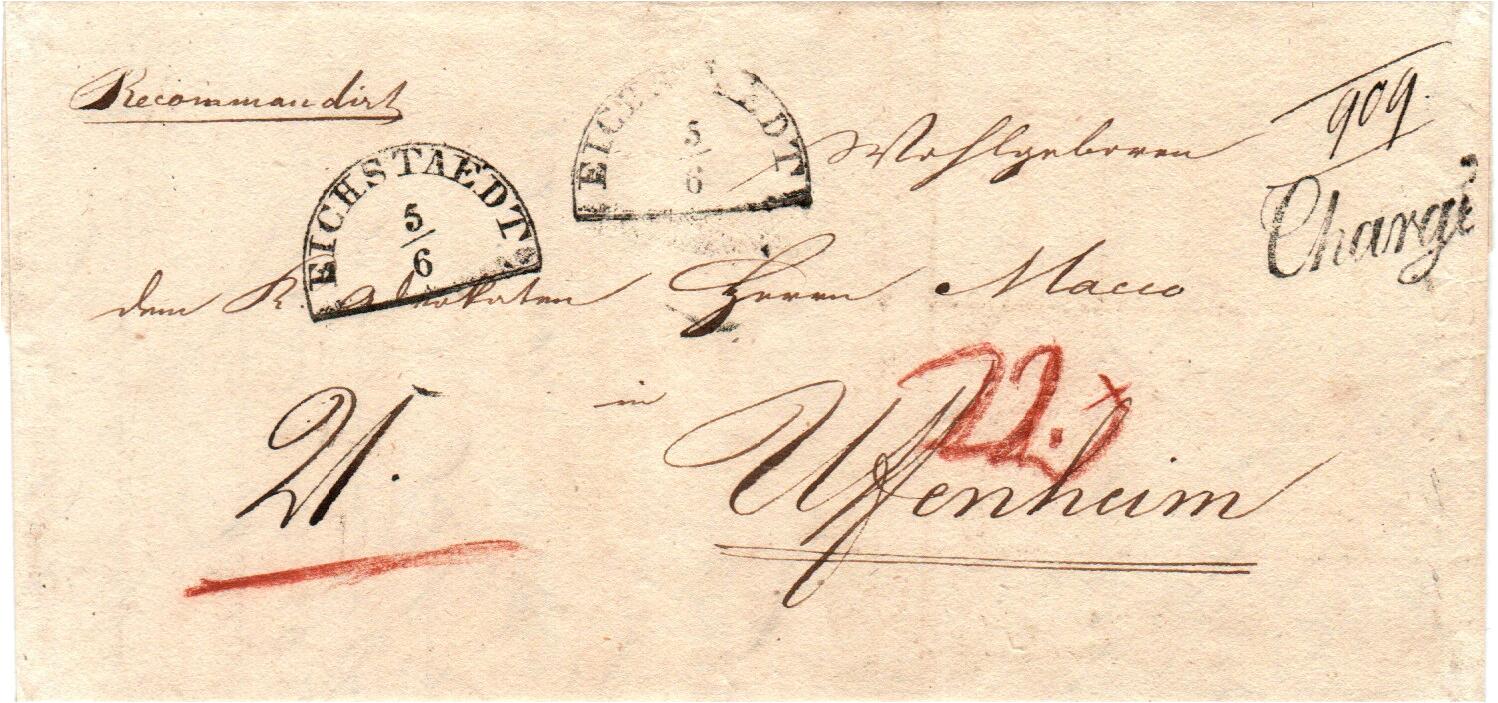 Recommandirt
909
Chargé
EICHSTAEDT
5/6
EICHSTAEDT
5/6
Wohlgeboren
dem K. Advokaten Herrn Macco
in
Uffenheim
22. x